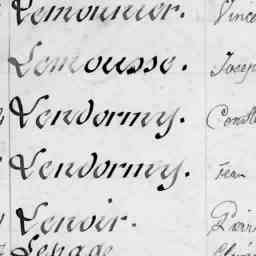 Lemonnier. Vince
Lemousse. Josep
Lendormy. Camille
Lendormy. Jean
Lenoir. Pierr
Lepage